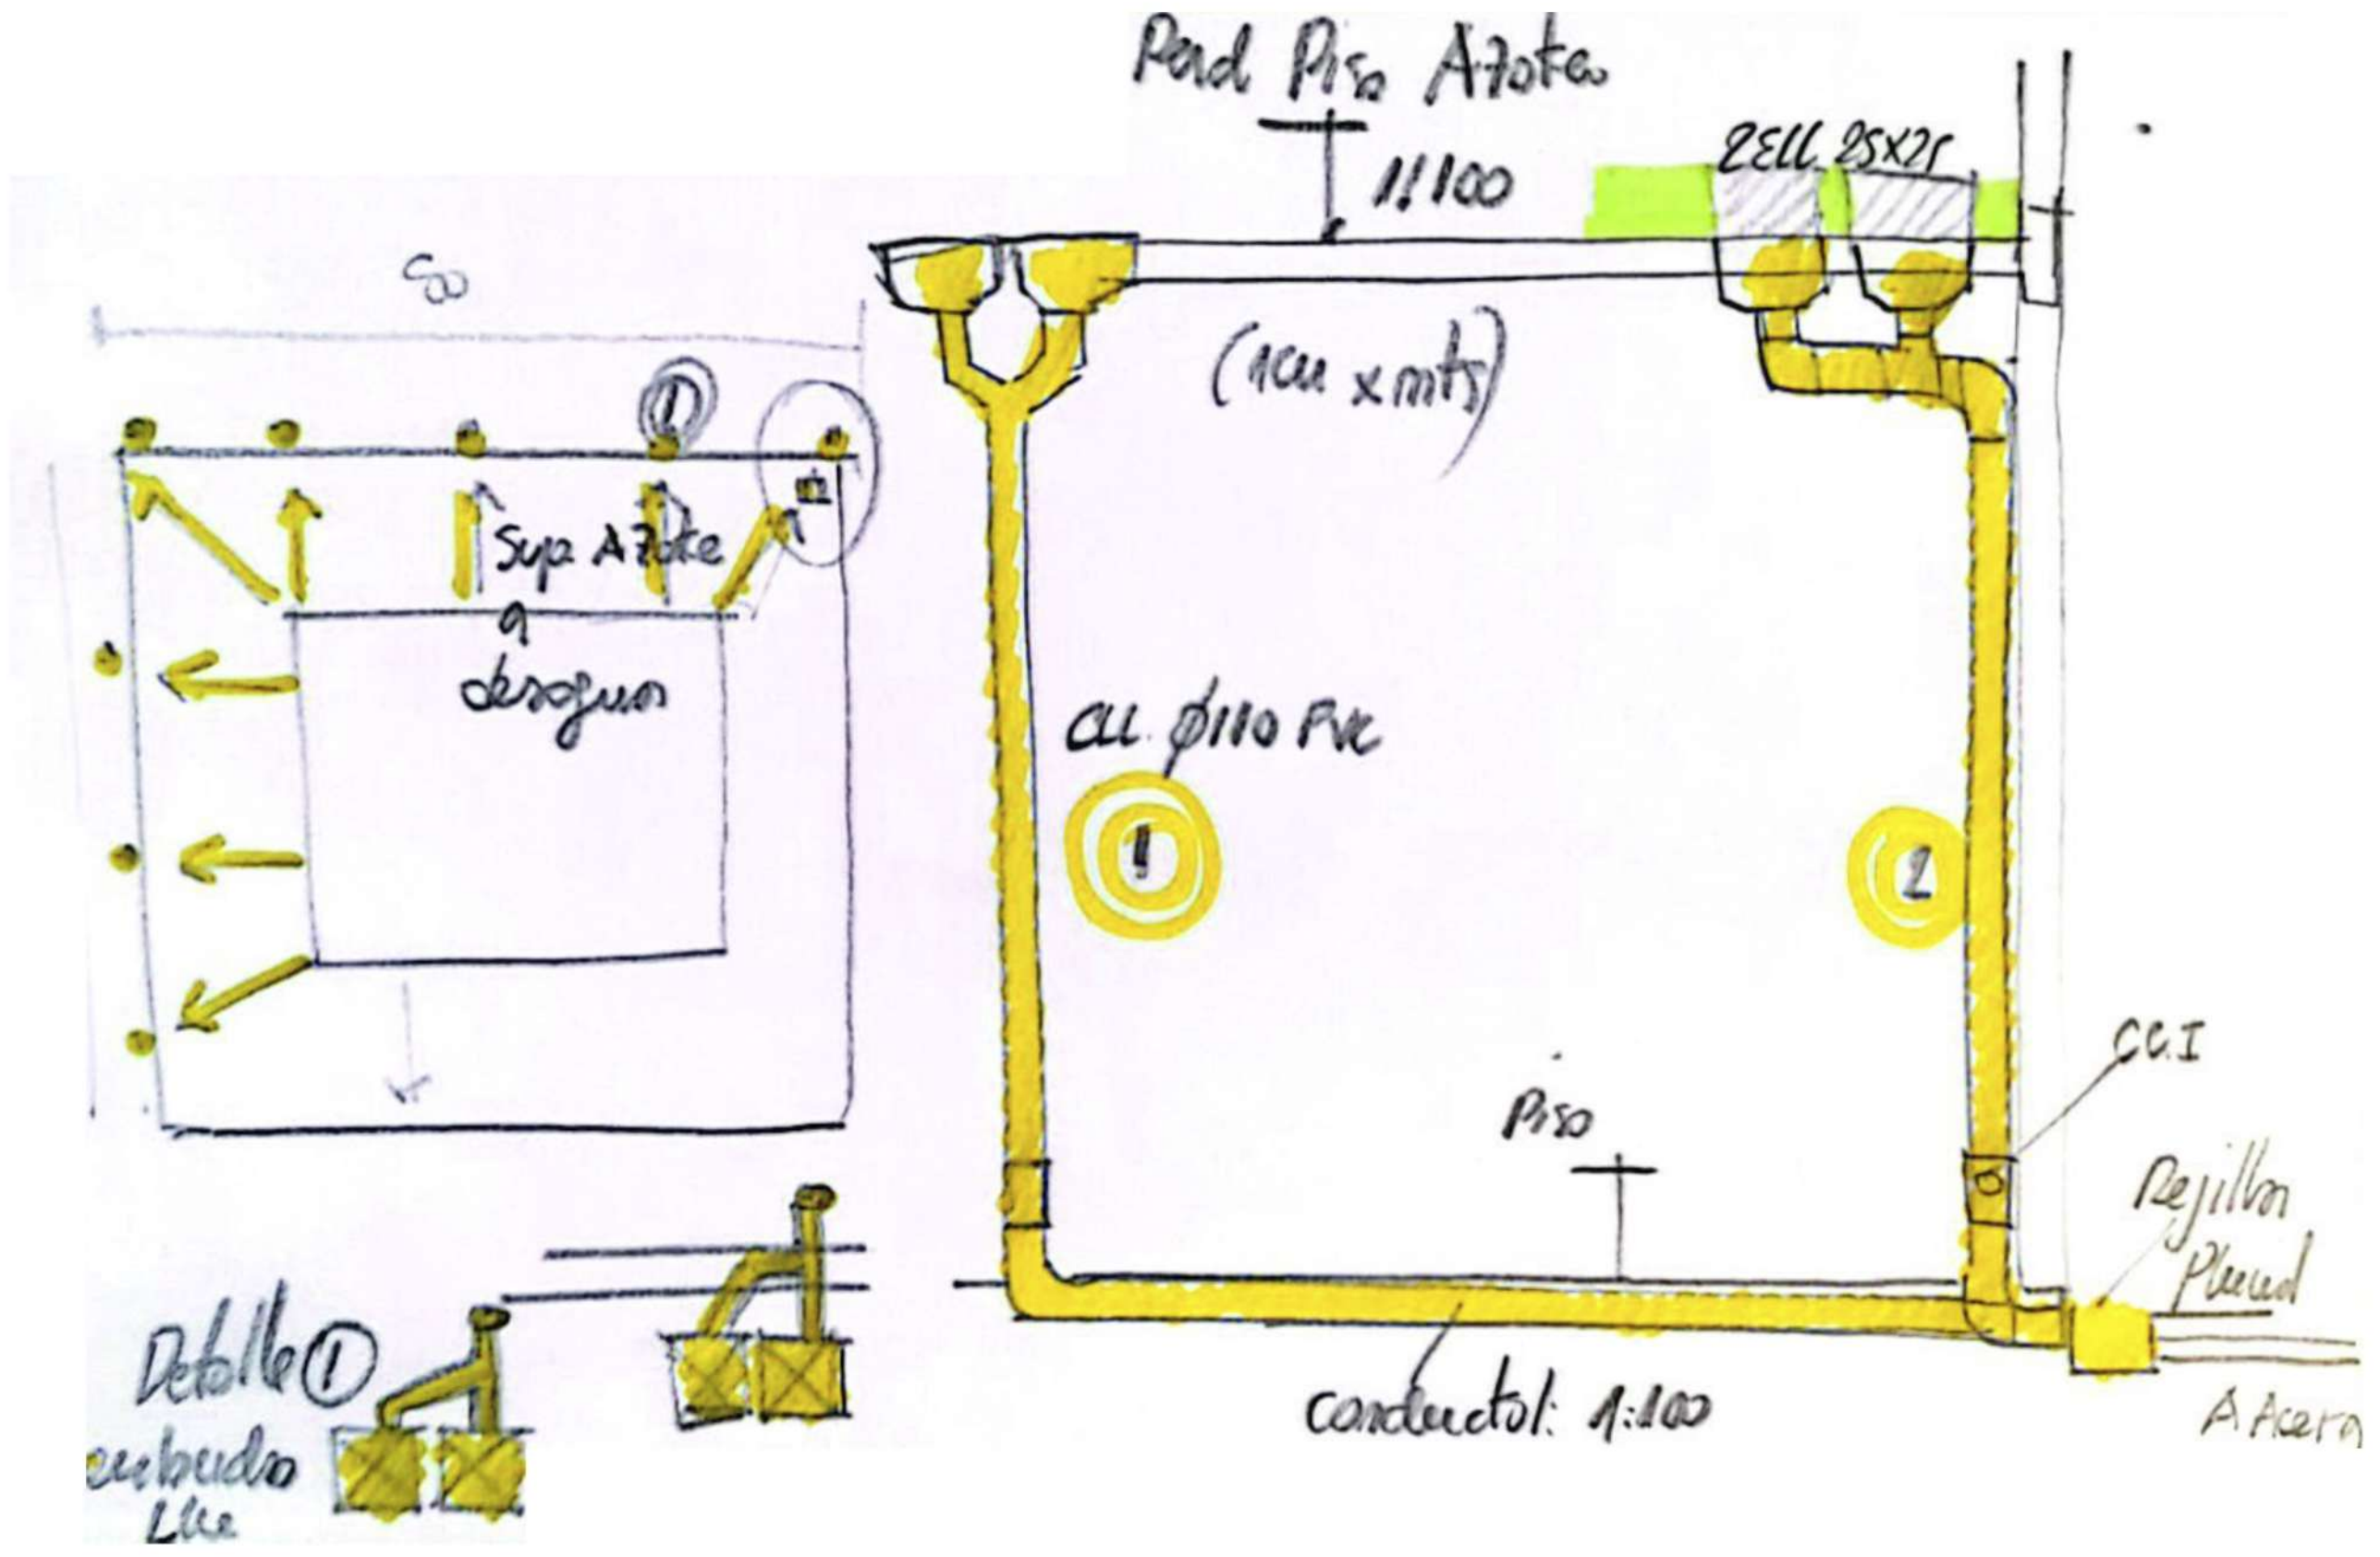 Pend Piso Azotea
1:100
2 Ell 25x25
(1cm x mts)
50
1
Sup Azote
a
desaguar
CLL. Ø110 PVC
1
2
C.C.I
Piso
Rejilla
Pluvial
Conductol: 1:100
A Acera
Detalle 1
embudo